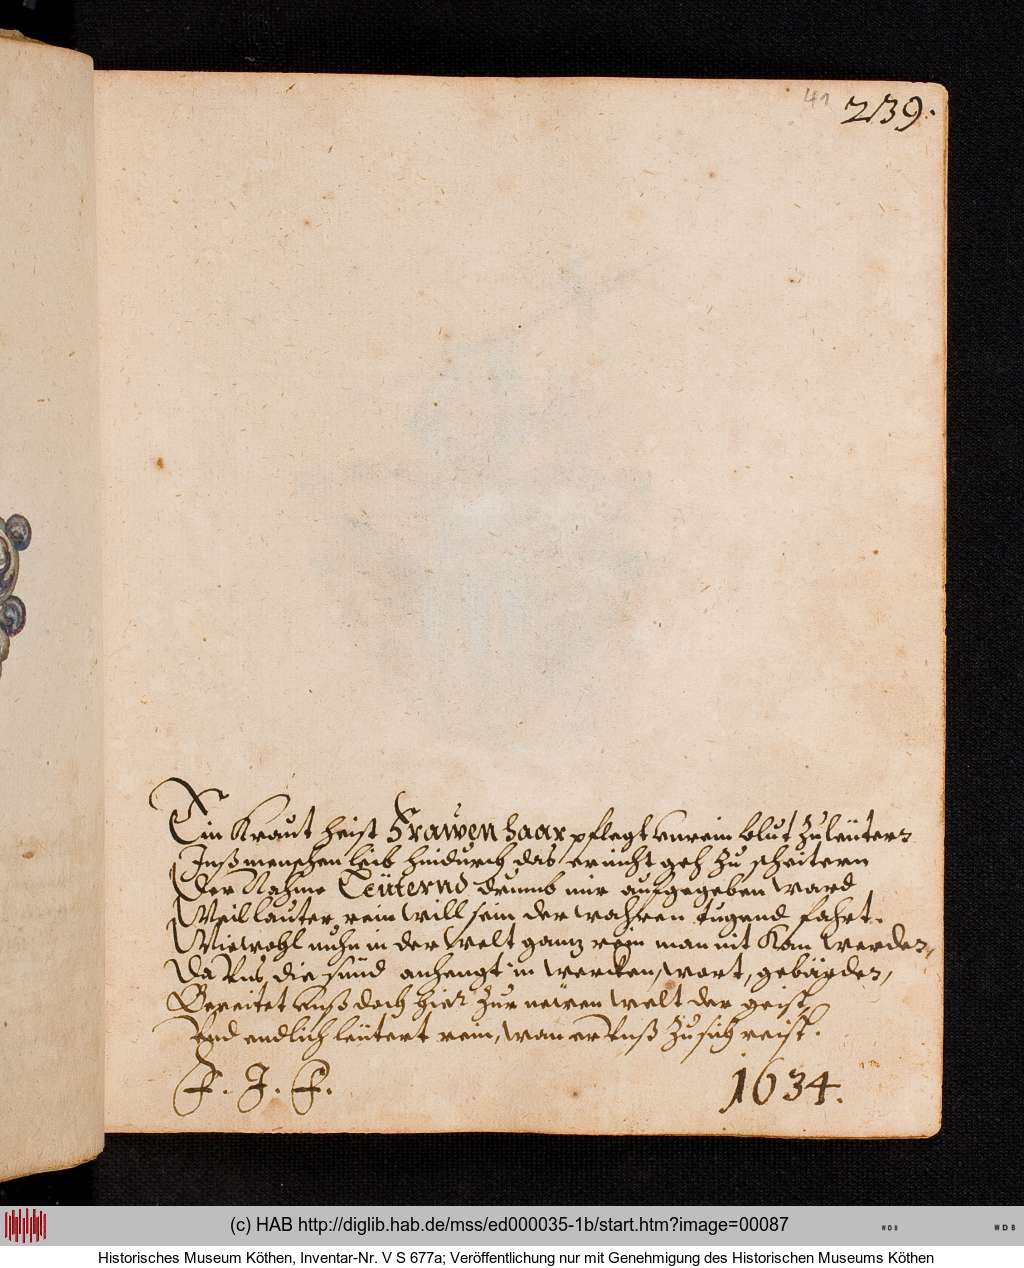 41
239.
Ein Kraut heist Frawen Haar pflegt vnrein blut zu leütern
Inß menschen leib hindurch das er nicht geh zu scheitern
Der Nahme Leüternd drumb mir aufgegeben ward
Weil lauter rein will sein der wahren tugend fahrt.
Wiewohl nuhn in der welt gantz rein man nit kan werden,
Da Vns die sünd anhengt in wercken, wort, gebärden,
Bereitet vnß doch hier zur newen welt der geist,
Vnd endlich leütert rein, wan er vnß zu sich reist.
F. J. F.
1634.
(c) HAB http://diglib.hab.de/mss/ed000035-1b/start.htm?image=00087
WDB
WDB
Historisches Museum Köthen, Inventar-Nr. V S 677a; Veröffentlichung nur mit Genehmigung des Historischen Museums Köthen